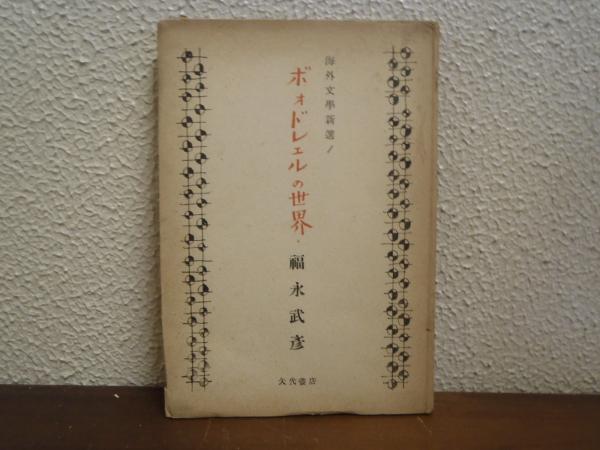 海外文學新選 1
ボオドレェルの世界・福永武彦
矢代書店